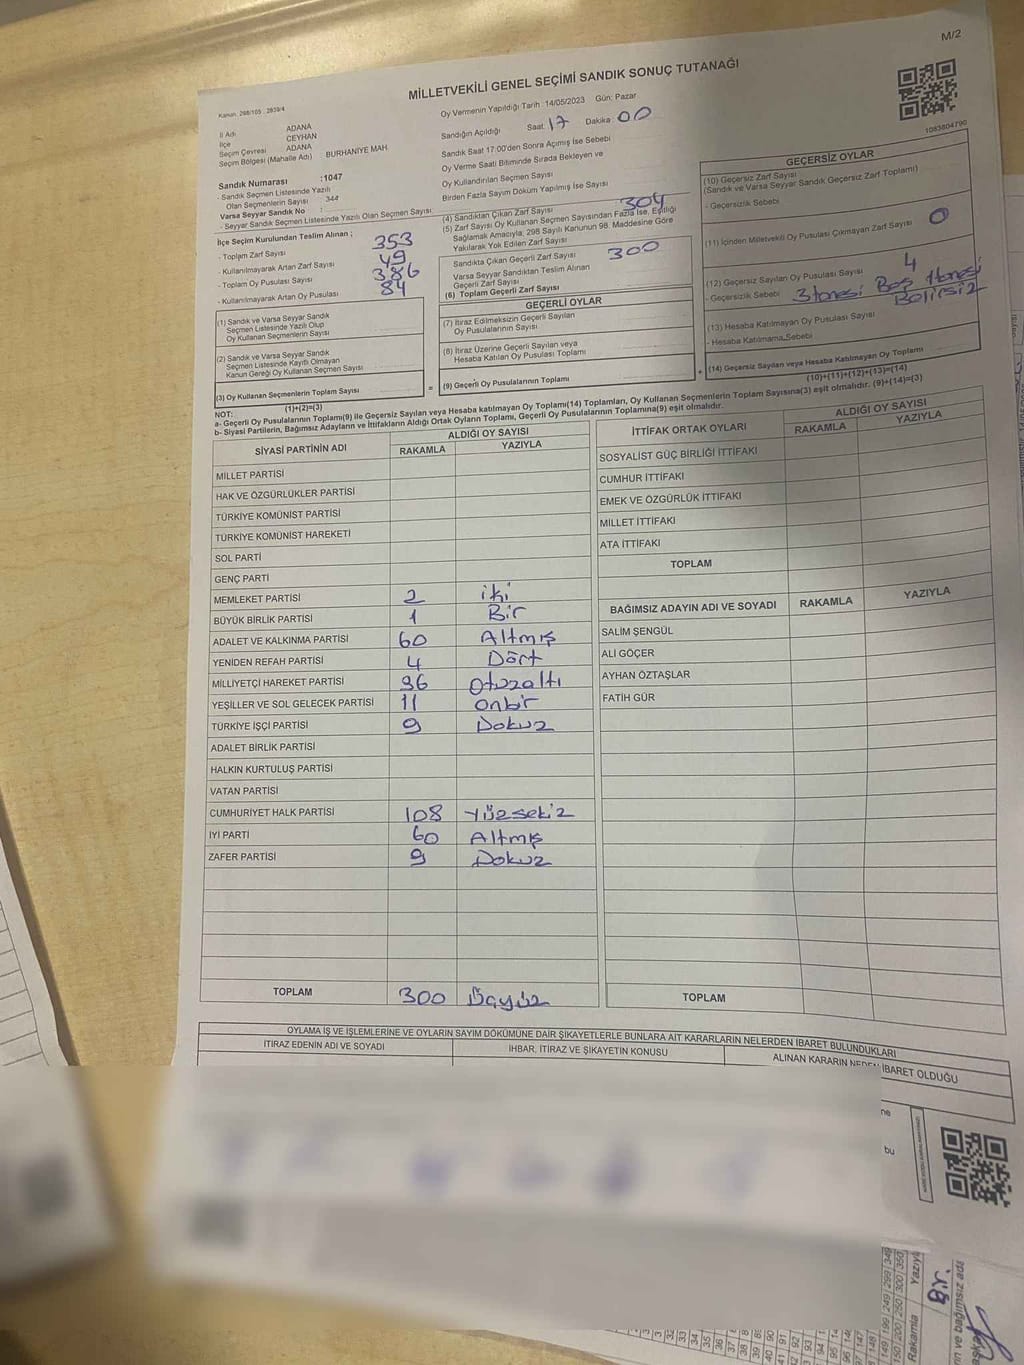 M/2
MİLLETVEKİLİ GENEL SEÇİMİ SANDIK SONUÇ TUTANAĞI
Kanun: 298/105 , 2839/4
Oy Vermenin Yapıldığı Tarih : 14/05/2023 Gün: Pazar
1083604790
İl Adı ADANA
İlçe CEYHAN
Seçim Çevresi ADANA
Seçim Bölgesi (Mahalle Adı) BURHANİYE MAH.
Sandığın Açıldığı Saat: 17 Dakika: 00
Sandık Saat 17:00'den Sonra Açımış İse Sebebi
Oy Verme Saati Bitiminde Sırada Bekleyen ve
Oy Kullandırılan Seçmen Sayısı
Birden Fazla Sayım Döküm Yapılmış İse Sayısı
Sandık Numarası :1047
- Sandık Seçmen Listesinde Yazılı
Olan Seçmenlerin Sayısı 344
Varsa Seyyar Sandık No :
- Seyyar Sandık Seçmen Listesinde Yazılı Olan Seçmen Sayısı:
İlçe Seçim Kurulundan Teslim Alınan ;
- Toplam Zarf Sayısı 353
- Kullanılmayarak Artan Zarf Sayısı 49
- Toplam Oy Pusulası Sayısı 386
- Kullanılmayarak Artan Oy Pusulası 84
(1) Sandık ve Varsa Seyyar Sandık
Seçmen Listesinde Yazılı Olup
Oy Kullanan Seçmenlerin Sayısı
(2) Sandık ve Varsa Seyyar Sandık
Seçmen Listesinde Kayıtlı Olmayan
Kanun Gereği Oy Kullanan Seçmen Sayısı
(3) Oy Kullanan Seçmenlerin Toplam Sayısı
(1)+(2)=(3)
(4) Sandıktan Çıkan Zarf Sayısı 304
(5) Zarf Sayısı Oy Kullanan Seçmen Sayısından Fazla İse, Eşitliği
Sağlamak Amacıyla, 298 Sayılı Kanunun 98. Maddesine Göre
Yakılarak Yok Edilen Zarf Sayısı
Sandıkta Çıkan Geçerli Zarf Sayısı 300
Varsa Seyyar Sandıktan Teslim Alınan
Geçerli Zarf Sayısı
(6) Toplam Geçerli Zarf Sayısı
GEÇERLİ OYLAR
(7) İtiraz Edilmeksizin Geçerli Sayılan
Oy Pusulalarının Sayısı
(8) İtiraz Üzerine Geçerli Sayılan veya
Hesaba Katılan Oy Pusulası Toplamı
= (9) Geçerli Oy Pusulalarının Toplamı
GEÇERSİZ OYLAR
(10) Geçersiz Zarf Sayısı
(Sandık ve Varsa Seyyar Sandık Geçersiz Zarf Toplamı)
- Geçersizlik Sebebi
(11) İçinden Milletvekili Oy Pusulası Çıkmayan Zarf Sayısı 0
(12) Geçersiz Sayılan Oy Pusulası Sayısı 4
- Geçersizlik Sebebi 3 tanesi Boş 1 tanesi
Belirsiz
(13) Hesaba Katılmayan Oy Pusulası Sayısı
- Hesaba Katılmama Sebebi
+ (14) Geçersiz Sayılan veya Hesaba Katılmayan Oy Toplamı
(10)+(11)+(12)+(13)=(14)
NOT:
a- Geçerli Oy Pusulalarının Toplamı(9) ile Geçersiz Sayılan veya Hesaba katılmayan Oy Toplamı(14) Toplamları, Oy Kullanan Seçmenlerin Toplam Sayısına(3) eşit olmalıdır. (9)+(14)=(3)
b- Siyasi Partilerin, Bağımsız Adayların ve İttifakların Aldığı Ortak Oyların Toplamı, Geçerli Oy Pusulalarının Toplamına(9) eşit olmalıdır.
SİYASİ PARTİNİN ADI ALDIĞI OY SAYISI
RAKAMLA YAZIYLA
MİLLET PARTİSİ
HAK VE ÖZGÜRLÜKLER PARTİSİ
TÜRKİYE KOMÜNİST PARTİSİ
TÜRKİYE KOMÜNİST HAREKETİ
SOL PARTİ
GENÇ PARTİ
MEMLEKET PARTİSİ 2 iki
BÜYÜK BİRLİK PARTİSİ 1 Bir
ADALET VE KALKINMA PARTİSİ 60 Altmış
YENİDEN REFAH PARTİSİ 4 Dört
MİLLİYETÇİ HAREKET PARTİSİ 36 Otuzaltı
YEŞİLLER VE SOL GELECEK PARTİSİ 11 onbir
TÜRKİYE İŞÇİ PARTİSİ 9 Dokuz
ADALET BİRLİK PARTİSİ
HALKIN KURTULUŞ PARTİSİ
VATAN PARTİSİ
CUMHURİYET HALK PARTİSİ 108 Yüzsekiz
İYİ PARTİ 60 Altmış
ZAFER PARTİSİ 9 Dokuz
TOPLAM 300 Üçyüz
İTTİFAK ORTAK OYLARI ALDIĞI OY SAYISI
RAKAMLA YAZIYLA
SOSYALİST GÜÇ BİRLİĞİ İTTİFAKI
CUMHUR İTTİFAKI
EMEK VE ÖZGÜRLÜK İTTİFAKI
MİLLET İTTİFAKI
ATA İTTİFAKI
TOPLAM
BAĞIMSIZ ADAYIN ADI VE SOYADI RAKAMLA YAZIYLA
SALİM ŞENGÜL
ALİ GÖÇER
AYHAN ÖZTAŞLAR
FATİH GÜR
TOPLAM
OYLAMA İŞ VE İŞLEMLERİNE VE OYLARIN SAYIM DÖKÜMÜNE DAİR ŞİKAYETLERLE BUNLARA AİT KARARLARIN NELERDEN İBARET BULUNDUKLARI
İTİRAZ EDENİN ADI VE SOYADI İHBAR, İTİRAZ VE ŞİKAYETİN KONUSU ALINAN KARARIN NEDEN İBARET OLDUĞU
ne
bu
149 199 249 299 349
150 200 250 300 350
Rakamla Yazıyl
Bir.
n ve bağımsız ada